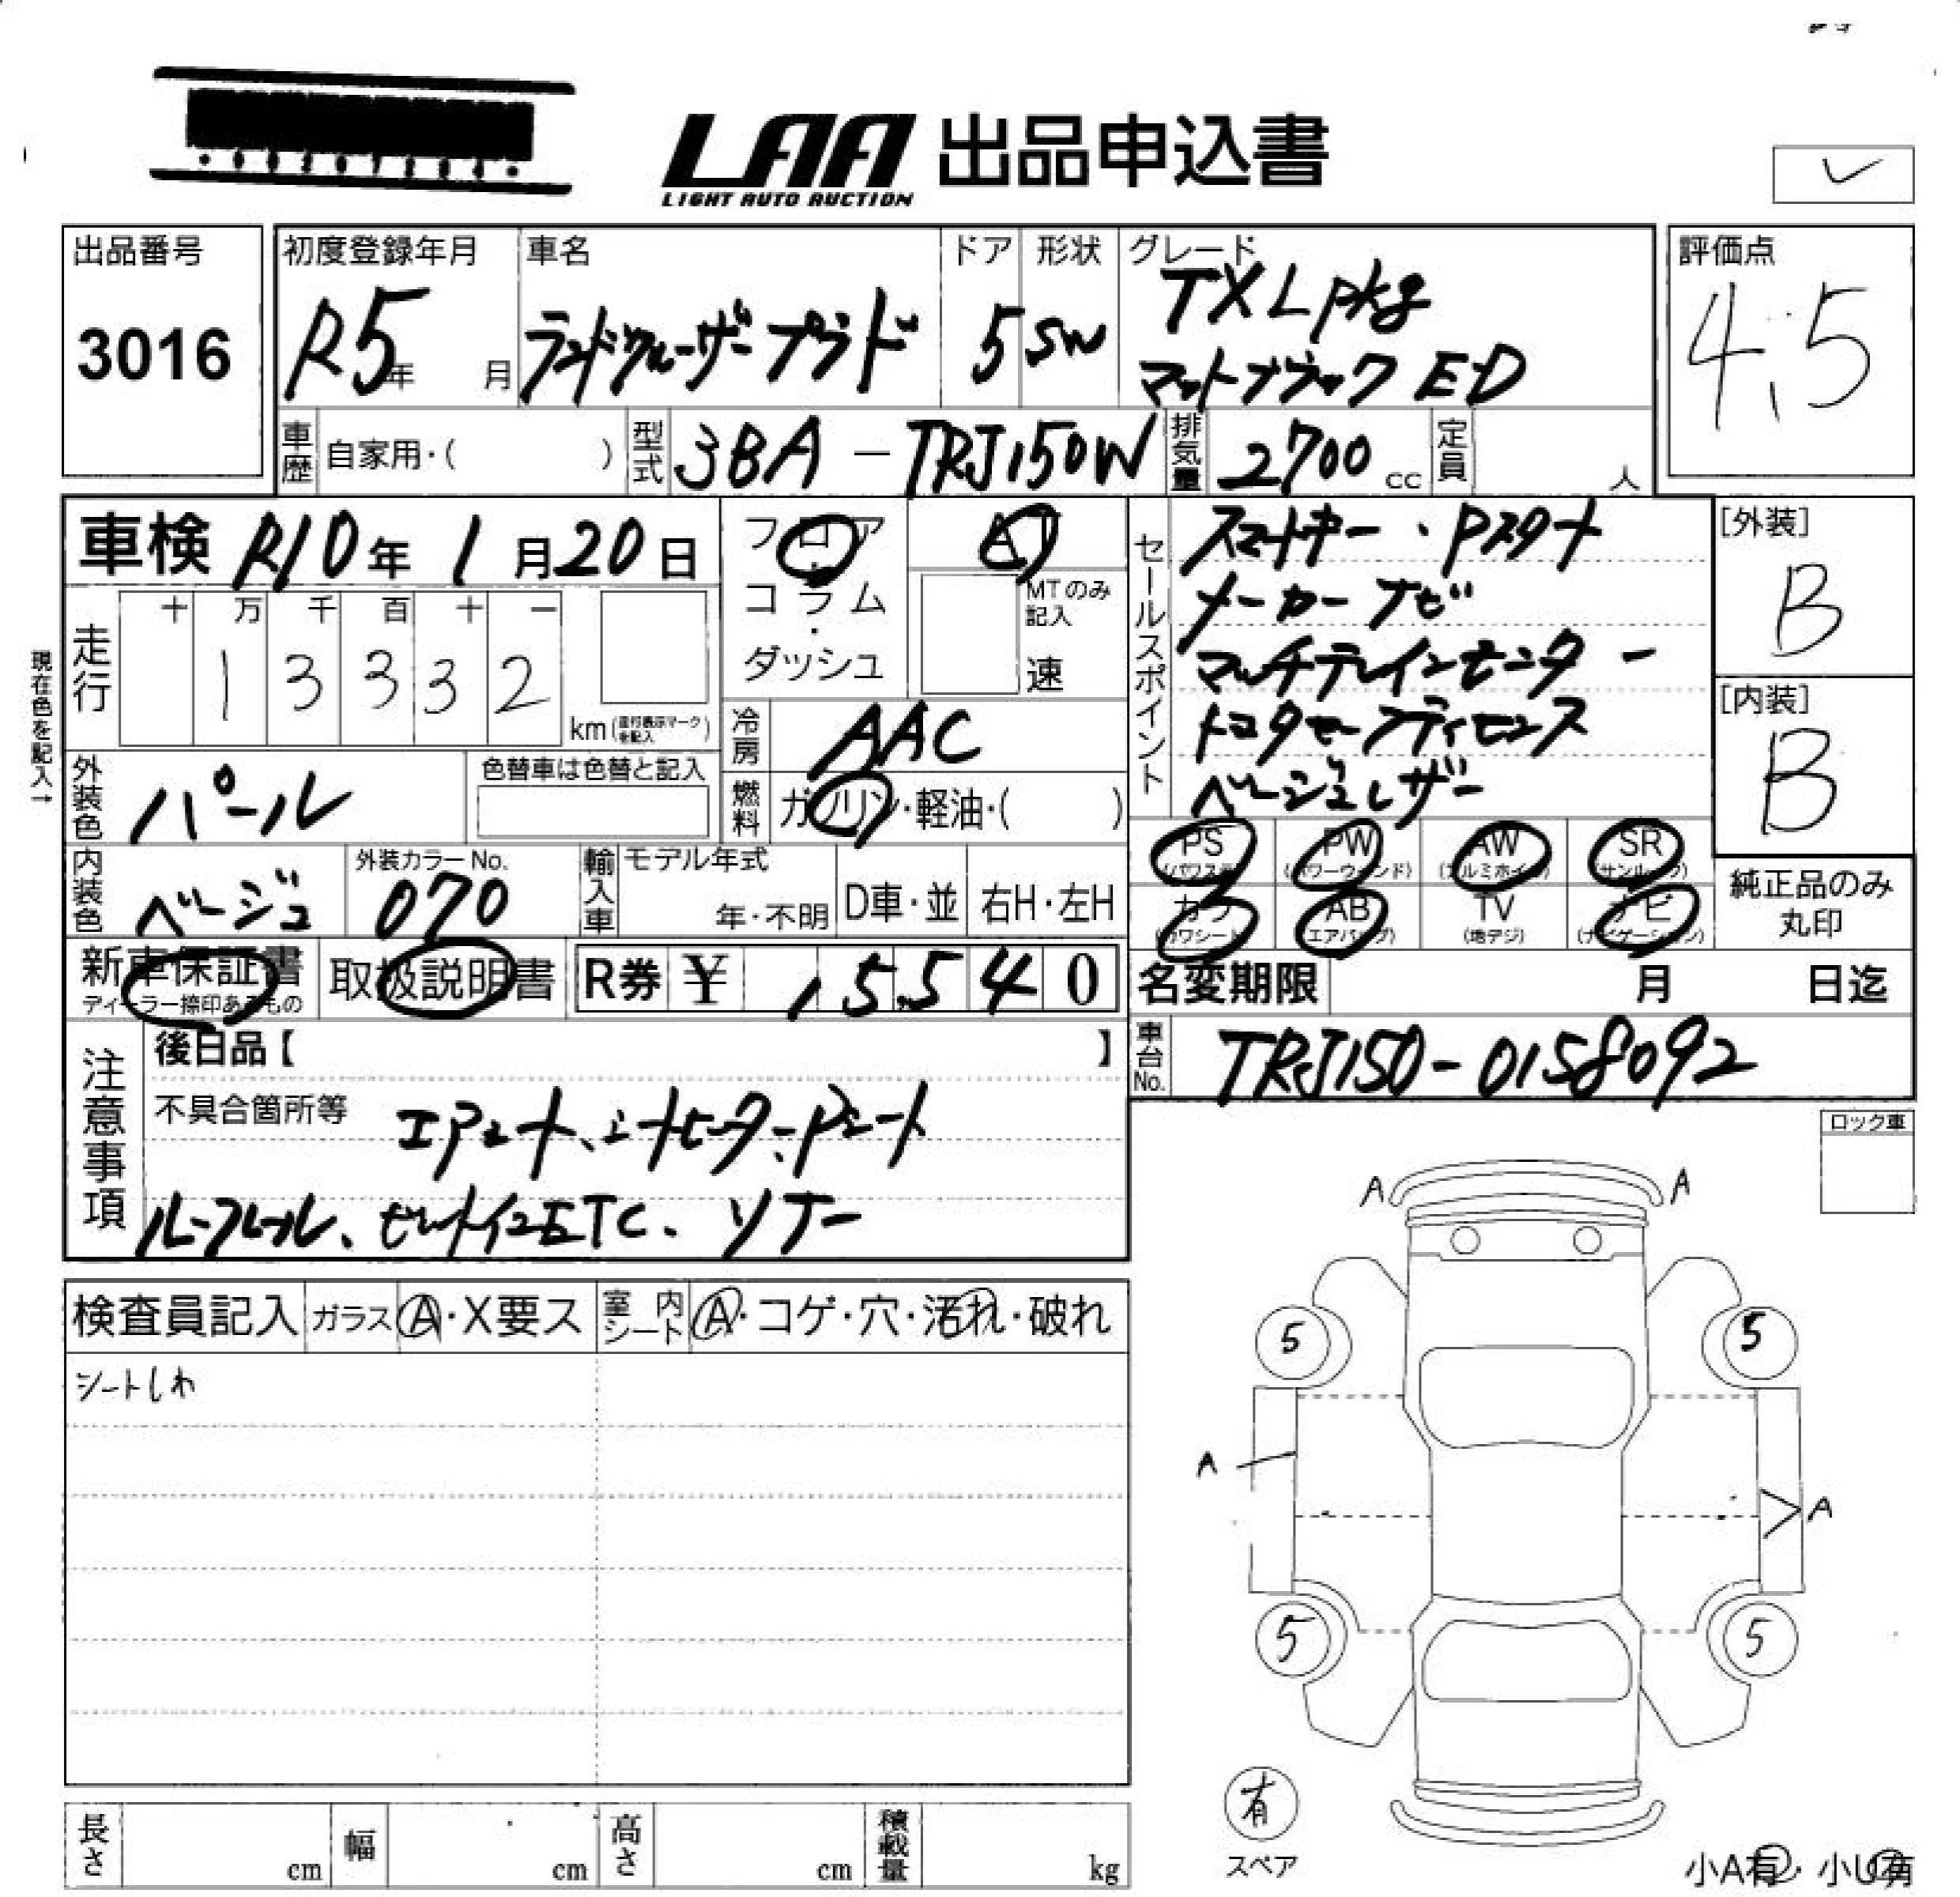 LAA 出品申込書
LIGHT AUTO AUCTION
出品番号
3016
初度登録年月
R5年 月
車名
ランドクルーザープラド
ドア
5
形状
SW
グレード
TX Lpkg
マットブラック ED
評価点
4.5
車歴 自家用・( )
型式 3BA-TRJ150W
排気量 2700 cc
定員 人
車検 R10年 1月20日
フロア・コラム・ダッシュ
AT
MTのみ記入
速
セールスポイント
スマートキー・Pスタート
メーカーナビ
マルチテレインモニター
トヨタセーフティセンス
ベージュレザー
[外装]
B
[内装]
B
現在色を記入→
走行
十 万 千 百 十 一
1 3 3 3 2
km(走行表示マークを記入)
冷房 AAC
外装色 パール
色替車は色替と記入
燃料 ガソリン・軽油・( )
内装色 ベージュ
外装カラーNo.
070
輸入車 モデル年式
年・不明
D車・並
右H・左H
PS (パワステ)
PW (パワーウィンド)
AW (アルミホイル)
SR (サンルーフ)
カワ (カワシート)
AB (エアバッグ)
TV (地デジ)
ナビ (ナビゲーション)
純正品のみ
丸印
新車保証書
ディーラー捺印あるもの
取扱説明書
R券 ¥ 15,540
名変期限 月 日迄
車台No. TRJ150-0158092
注意事項
後日品【 】
不具合箇所等 エアシート、シートヒーター、Pシート
ルーフレール、ビルトインETC、ソナー
ロック車
検査員記入
ガラス A・X要ス
室内シート A・コゲ・穴・汚れ・破れ
シートしわ
A A
5 5
A
A
5 5
有
スペア
長さ cm
幅 cm
高さ cm
積載量 kg
小A有・小U有